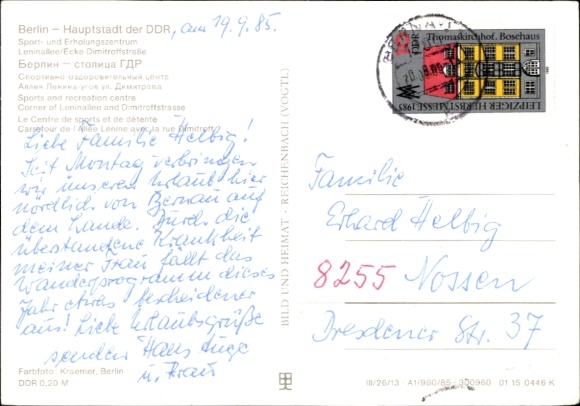 Berlin – Hauptstadt der DDR, am 19.9.85.
Sport- und Erholungszentrum
Leninallee/Ecke Dimitroffstraße
Берлин — столица ГДР
Спортивно оздоровительный центр
Аллея Ленина-угол ул. Димитрова
Sports and recreation centre
Corner of Leninallee and Dimitroffstrasse
Le Centre de sports et de détente
Carrefour de l'Allée Lénine avec la rue Dimitroff
Liebe Familie Helbig!
Seit Montag verbringen
wir unseren Urlaub hier
nördlich von Bernau auf
dem Lande. Durch die
überstandene Krankheit
meiner Frau fällt das
Wanderprogramm dieses
Jahr etwas bescheidener
aus! Liebe Urlaubsgrüße
senden Hans
u. Frau
Farbfoto: Kraemer, Berlin
DDR 0,20 M
BILD UND HEIMAT - REICHENBACH (VOGTL)
DDR
Thomaskirchhof. Boschaus
LEIPZIGER HERBSTMESSE 1985
Familie
Erhard Helbig
8255 Nossen
Dresdener Str. 37
III/26/13 A1/960/85 300960 01 15 0446 K